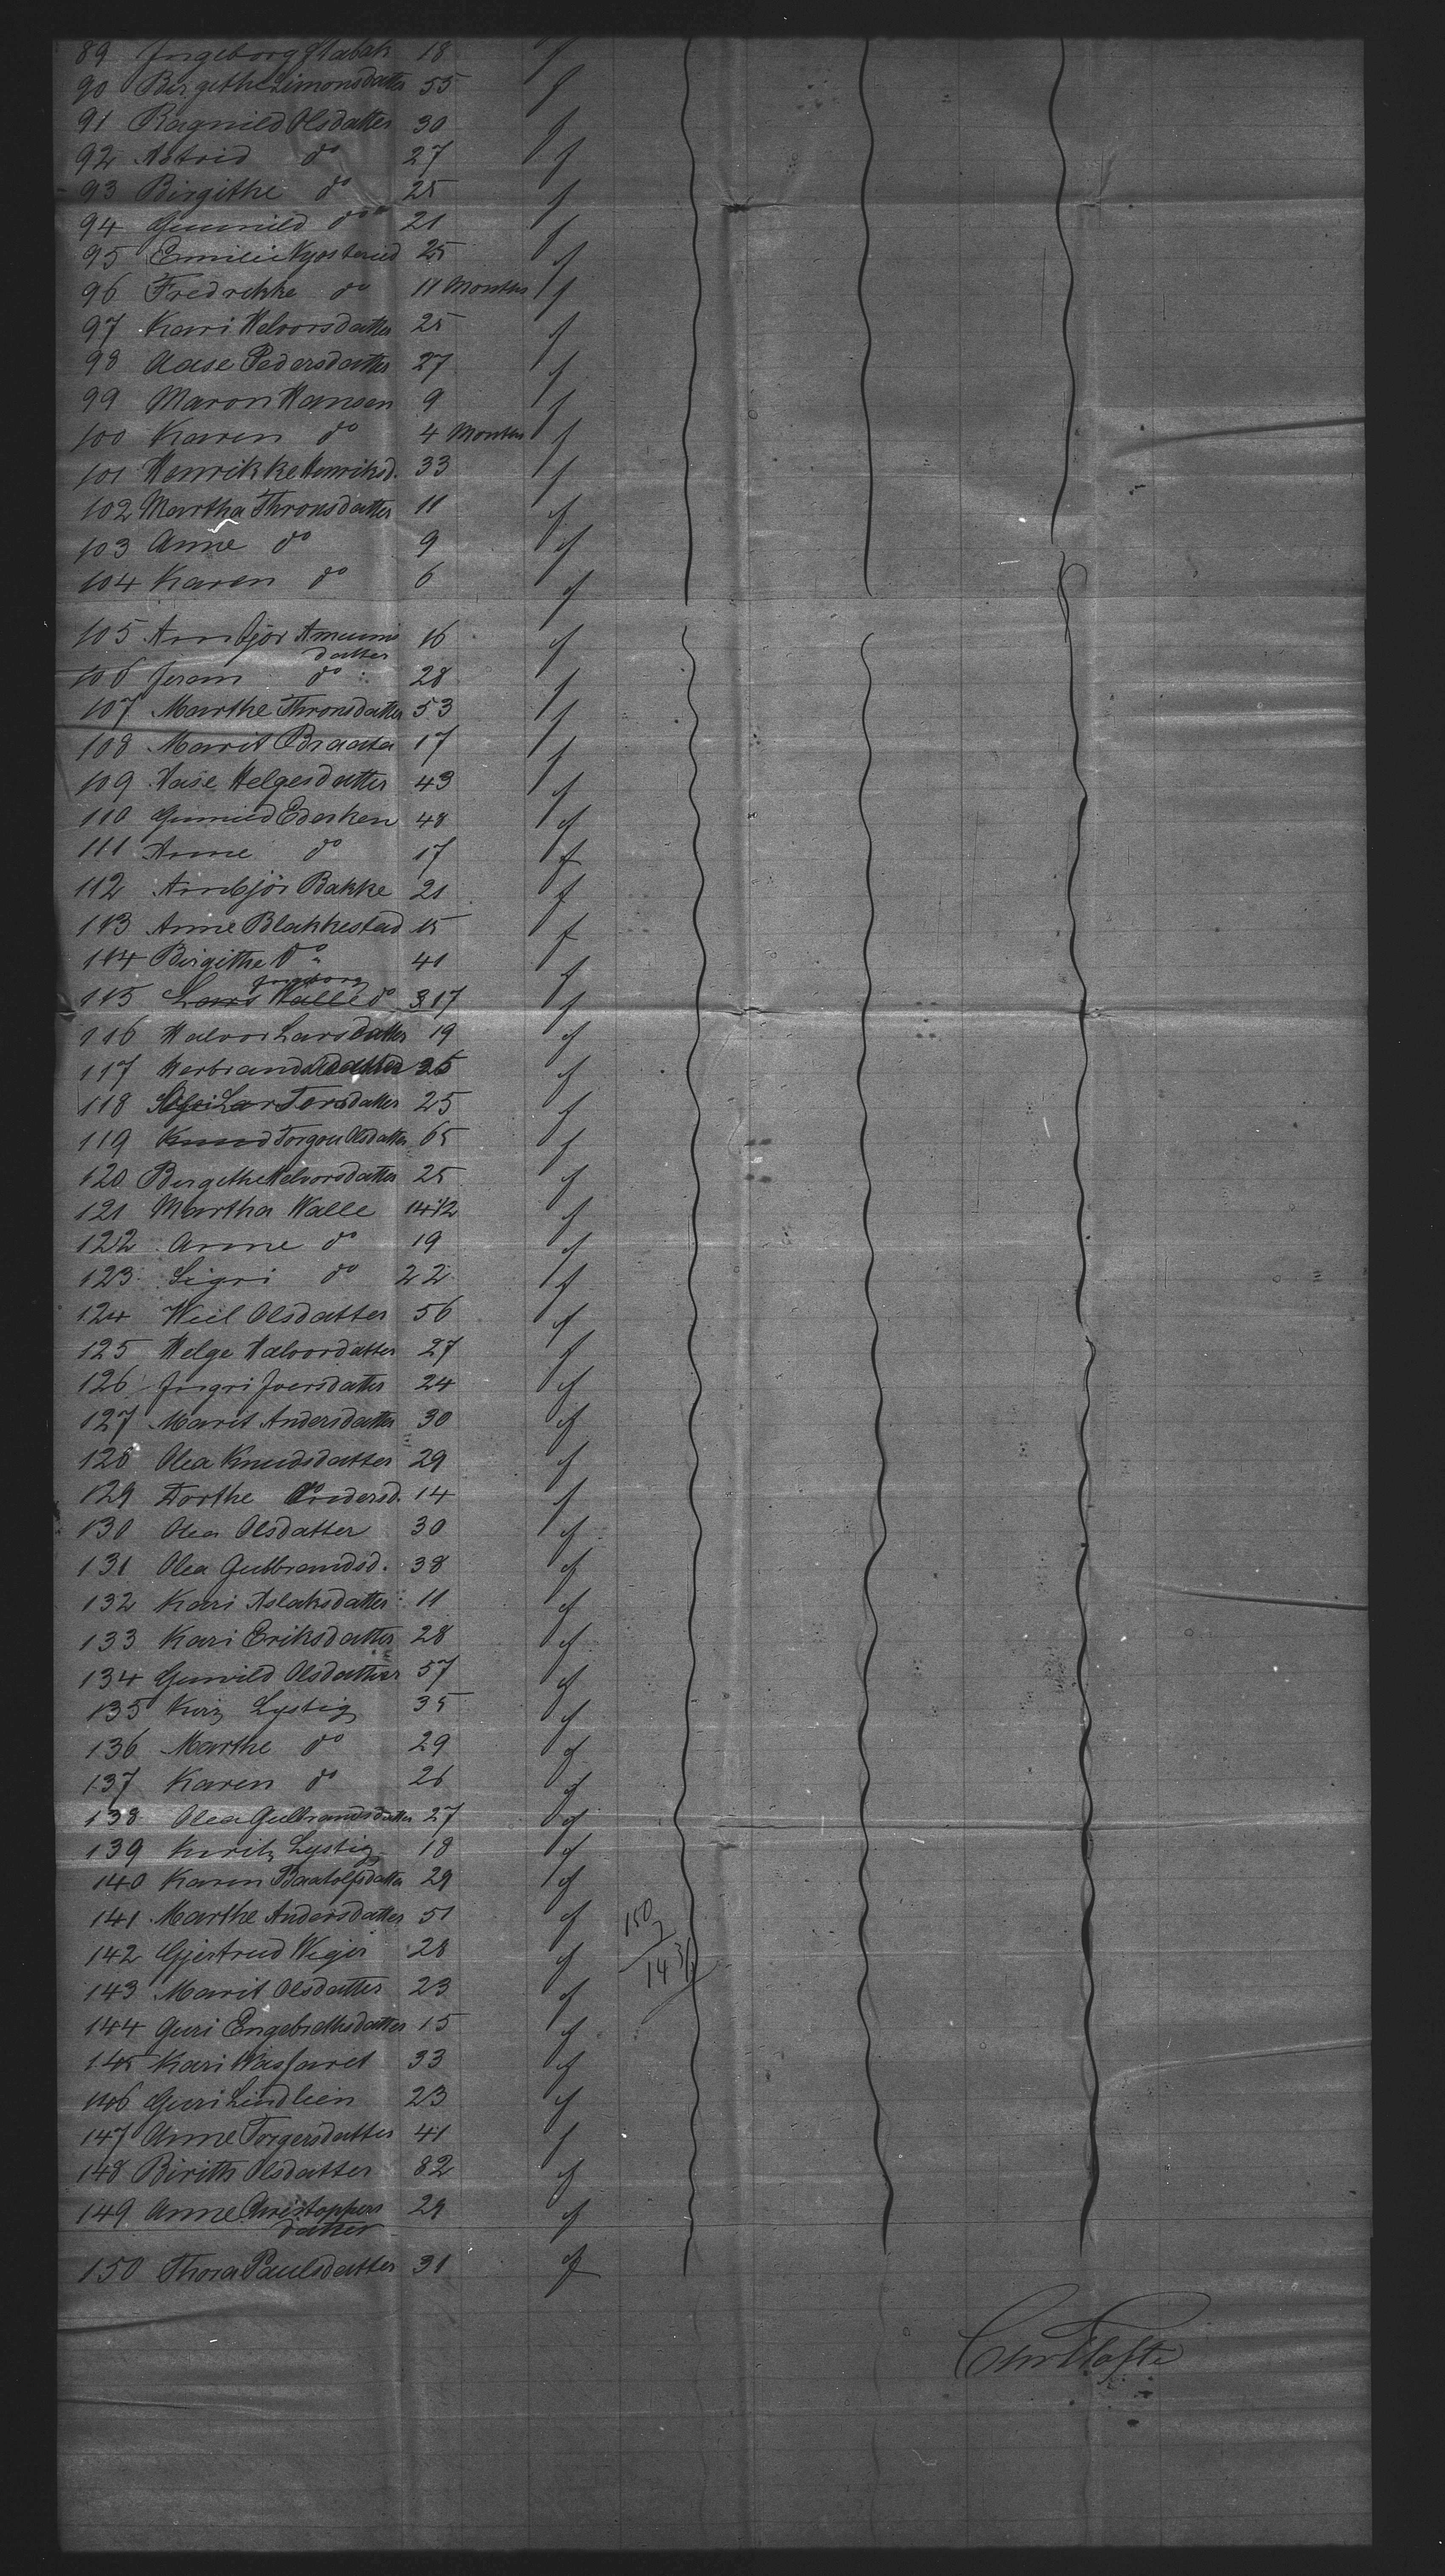 89 Ingeborg Flabak 18 f
90 Birgethe Simonsdatter 55 f
91 Ragnild Olsdatter 30 f
92 Astrid do 27 f
93 Birgithe do 25 f
94 Gunnild do 21 f
95 Emilie 25 f
96 Fredrekke do 11 Months f
97 Kari Helvorsdatter 25 f
98 Aase Pedersdatter 27 f
99 Maron Hansen 9 f
100 Karen do 4 Months f
101 Henrikke Henriksd. 33 f
102 Martha Thronsdatter 11 f
103 Anne do 9 f
104 Karen do 6 f
105 Arnbjör Amunds 16 f
datter
106 Joran do 28 f
107 Marthe Thronsdatter 53 f
108 Marit Braata 17 f
109 Aase Helgesdatter 43 f
110 Gunnild Ederken 48 f
111 Anne do 17 f
112 Arnbjör Bakke 21 f
113 Anne Blakkestad 15 f
114 Birgithe do 41 f
Ingeborg
115 Lars Walle do 317 f
116 Halvor Larsdatter 19 f
117 Herbrand 35 f
118 Torsdatter 25 f
119 Knud Torgon Olsdatter 65 f
120 Birgethe Helvorsdatter 25 f
121 Martha Walle 14 1/2 f
122 Anne do 19 f
123 Sigri do 22 f
124 Olsdatter 56 f
125 Helge Halvordatter 27 f
126 Ingri Iversdatter 24 f
127 Marit Andersdatter 30 f
128 Olea Knudsdatter 29 f
129 Dorthe Andersd. 14 f
130 Olea Olsdatter 30 f
131 Olea Gulbrandsd. 38 f
132 Kari Aslaksdatter 11 f
133 Kari Eriksdatter 28 f
134 Gunild Olsdatter 57 f
135 Lystig 35 f
136 Marthe do 29 f
137 Karen do 26 f
138 Olea Gulbrandsdatter 27 f
139 Lystig 18 f
140 Karen Baatolfsdatter 29 f
141 Marthe Andersdatter 51 f 150
142 Gjertrud Weger 28 f 143 1/2
143 Marit Olsdatter 23 f
144 Guri Engebrethsdatter 15 f
145 Kari 33 f
146 Guri Lindlien 23 f
147 Anne Torgersdatter 41 f
148 Birith Olsdatter 82 f
149 Anne Christophers 29 f
datter
150 Thora Paulsdatter 31 f